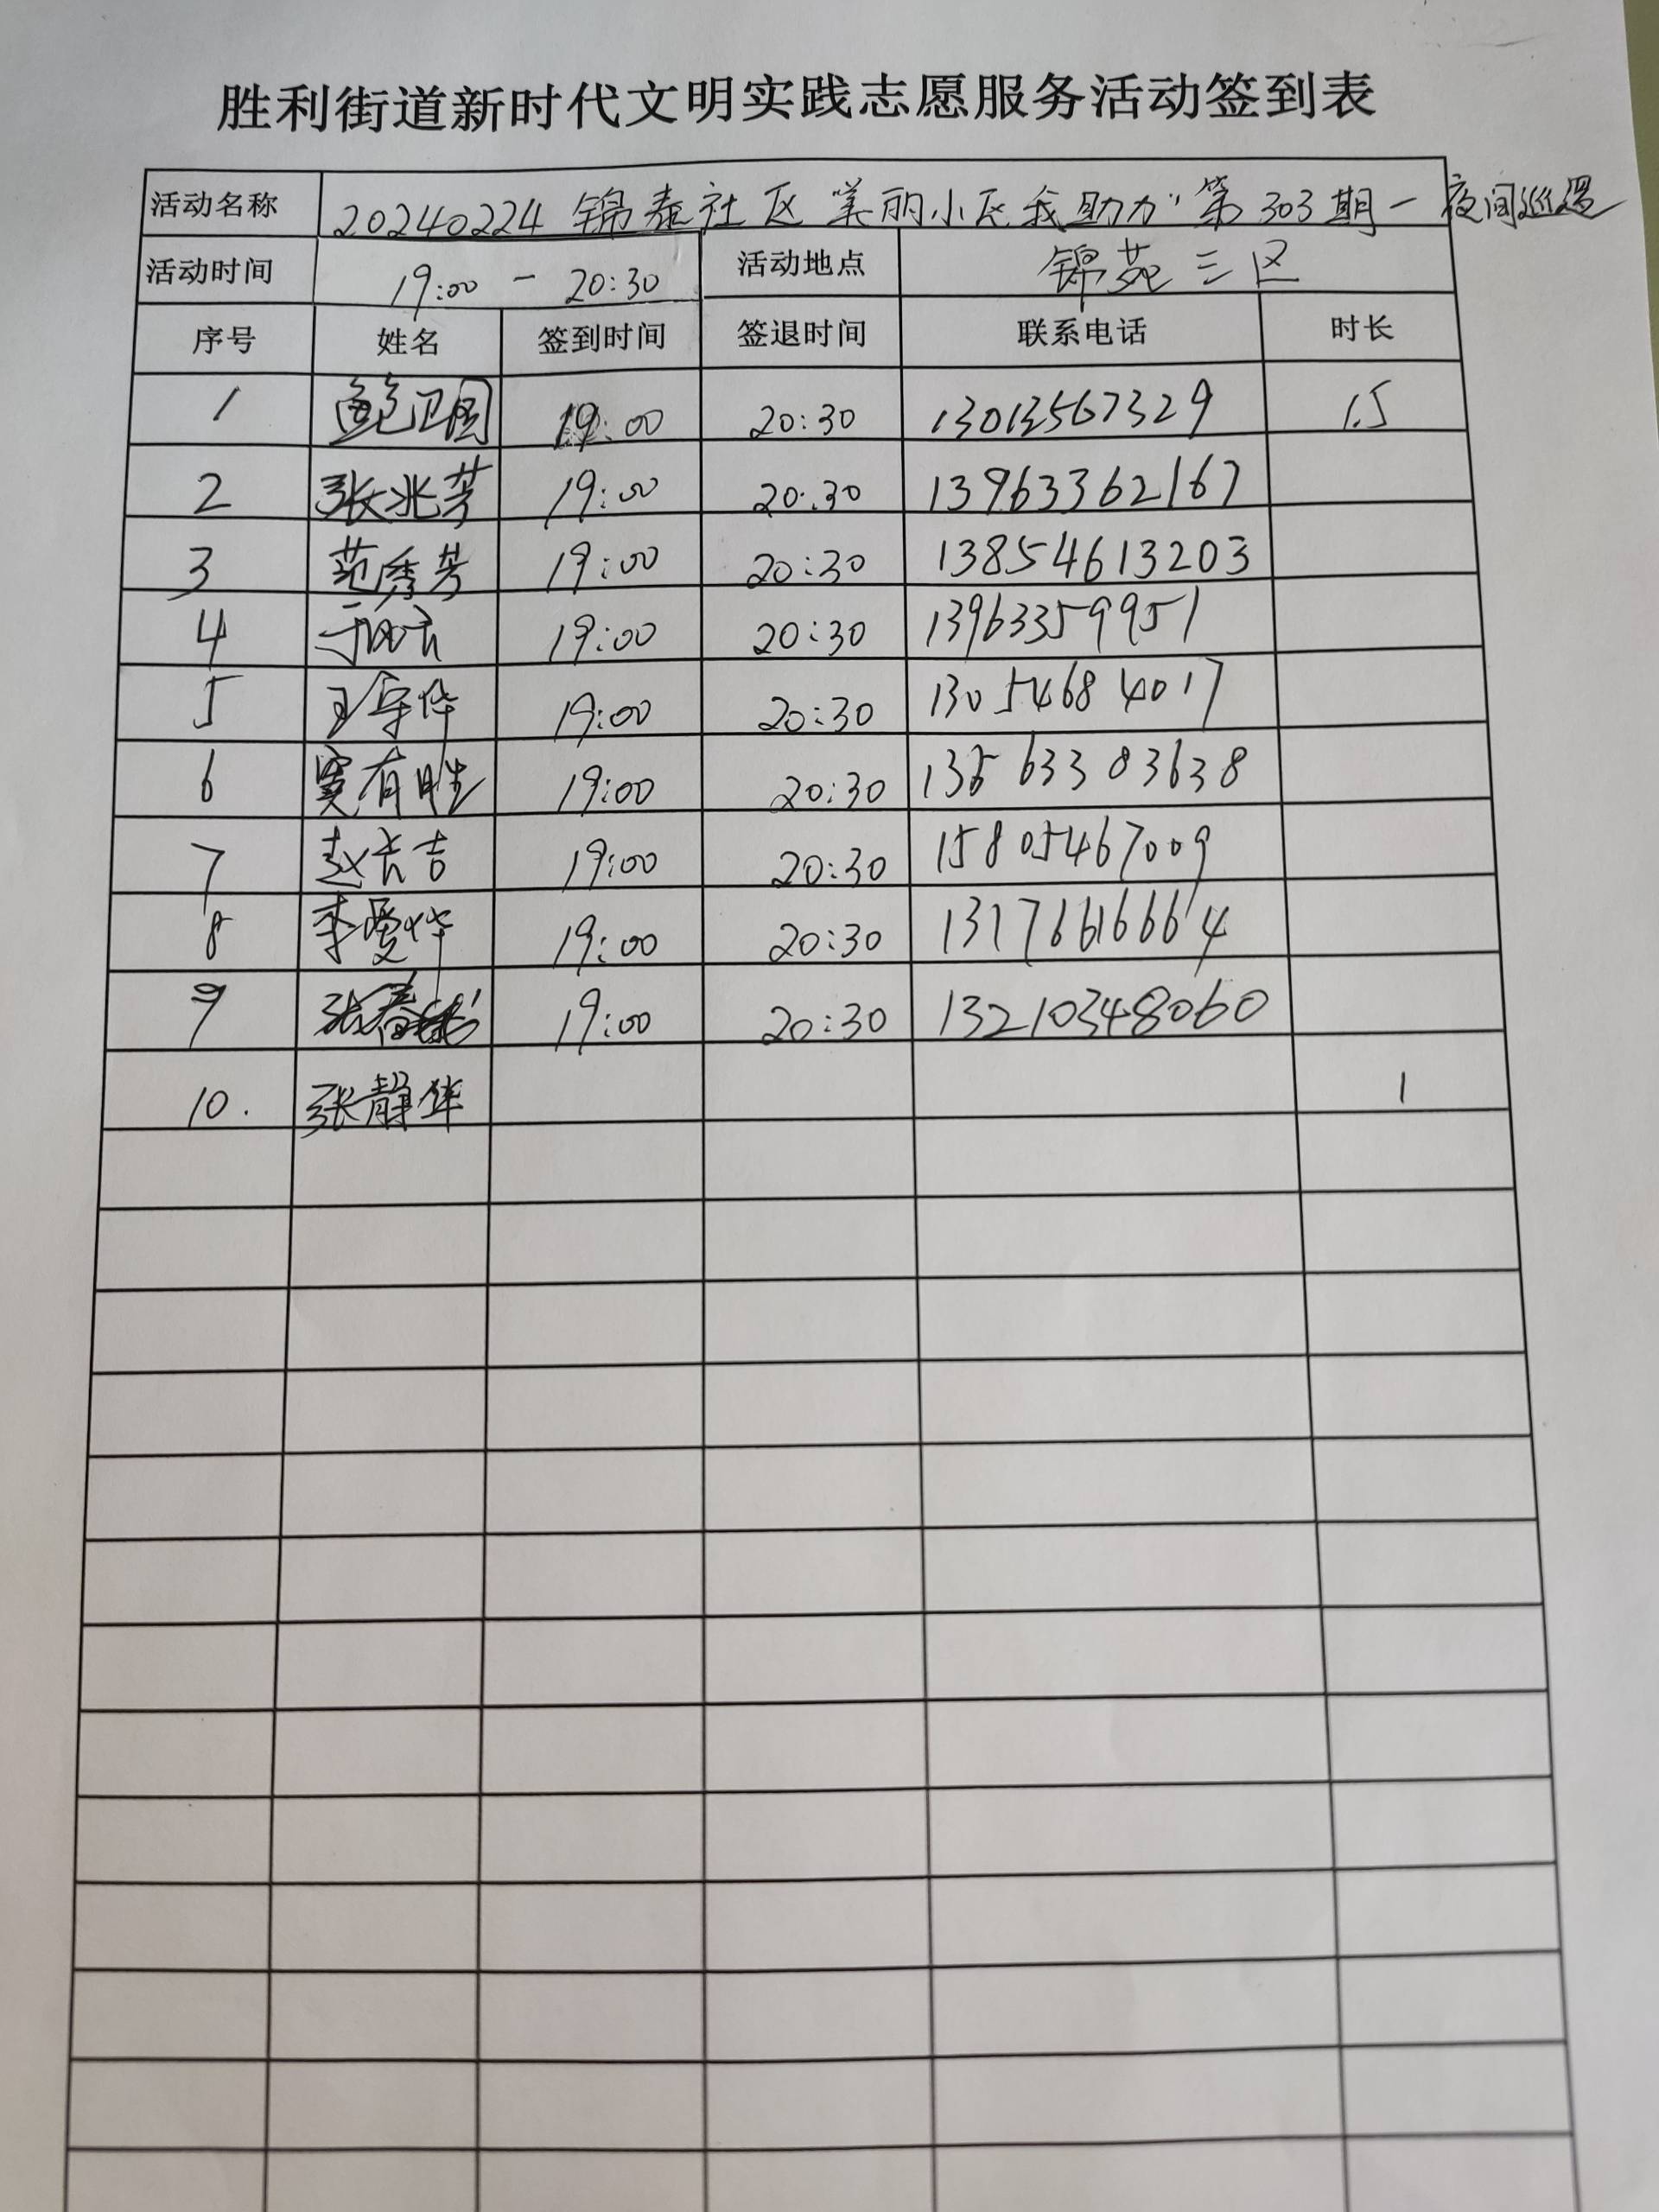 胜利街道新时代文明实践志愿服务活动签到表
活动名称 20240224 锦泰社区"美丽小区我助力"第303期一夜间巡逻
活动时间 19:00 - 20:30 活动地点 锦苑三区
序号 姓名 签到时间 签退时间 联系电话 时长
1 鲍卫国 19:00 20:30 13013567329 1.5
2 张兆芳 19:00 20:30 13963362167
3 范秀芳 19:00 20:30 13854613203
4 19:00 20:30 13963359951
5 19:00 20:30 13054684017
6 窦有胜 19:00 20:30 13563383638
7 赵长吉 19:00 20:30 15805467009
8 李爱华 19:00 20:30
9 张春 19:00 20:30 13210348060
10. 张静华 1